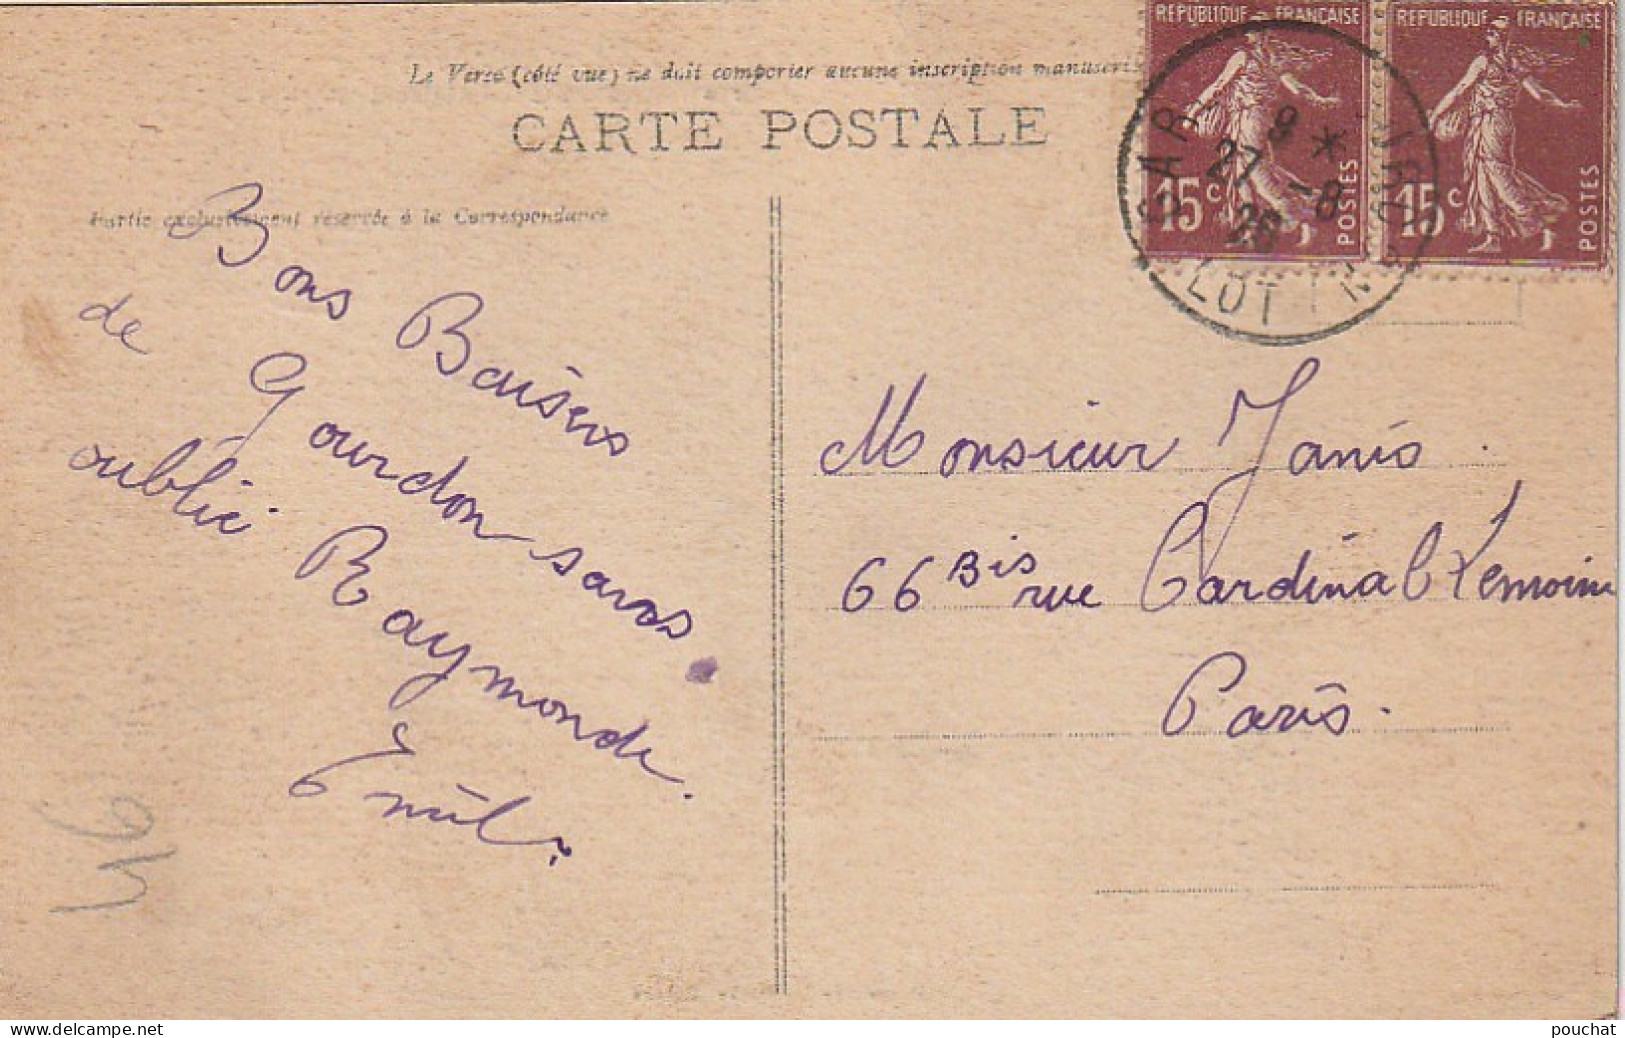 RÉPUBLIQUE FRANÇAISE
RÉPUBLIQUE FRANÇAISE
15c POSTES
15c POSTES
9 *
27 - 8
26
LOT
Le Verso (côté vue) ne doit comporter aucune inscription manuscri
CARTE POSTALE
Partie exclusivement réservée à la Correspondance
Bons Baisers
de Gourdon sans
oublié Raymonde.
Emil
Monsieur Janis.
66 Bis rue Cardinal Lemoine
Paris.
46
delcampe.net
pouchat